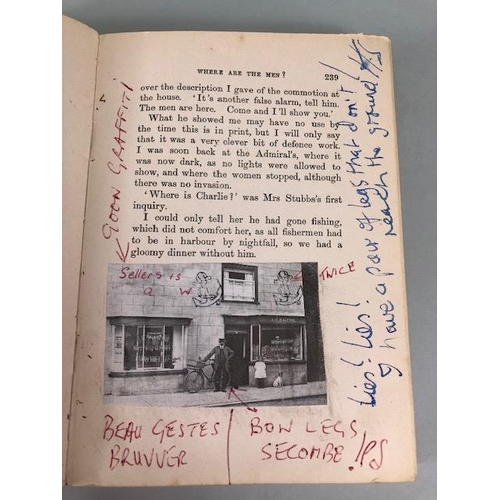 WHERE ARE THE MEN? 239
over the description I gave of the commotion at
the house. 'It's another false alarm, tell him.
The men are here. Come and I'll show you.'
What he showed me may have no use by
the time this is in print, but I will only say
that it was a very clever bit of defence work.
I was soon back at the Admiral's, where it
was now dark, as no lights were allowed to
show, and where the women stopped, although
there was no invasion.
'Where is Charlie?' was Mrs Stubbs's first
inquiry.
I could only tell her he had gone fishing,
which did not comfort her, as all fishermen had
to be in harbour by nightfall, so we had a
gloomy dinner without him.
GOON GRAFFITI
Sellers is
a W
TWICE
BEAU GESTES
BRUVVER
BOW LEGS
SECOMBE!
PS
Lies! Lies!
I have a pair of legs that don't
reach the ground! HS